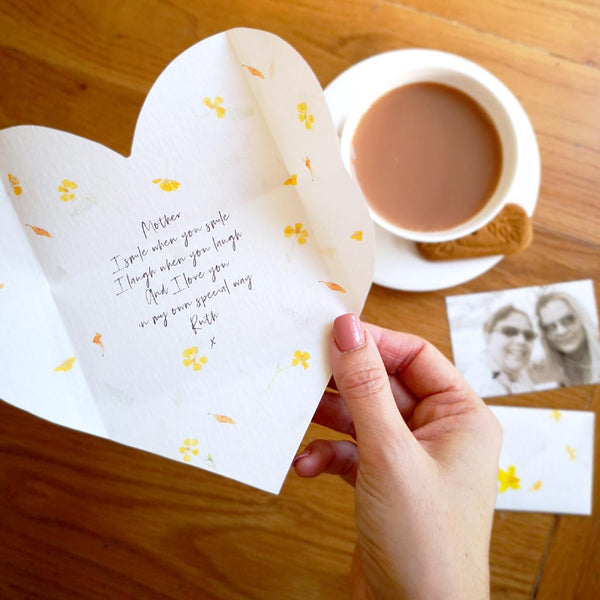 Mother
I smile when you smile
I laugh when you laugh
And I love you
in my own special way
Ruth
x